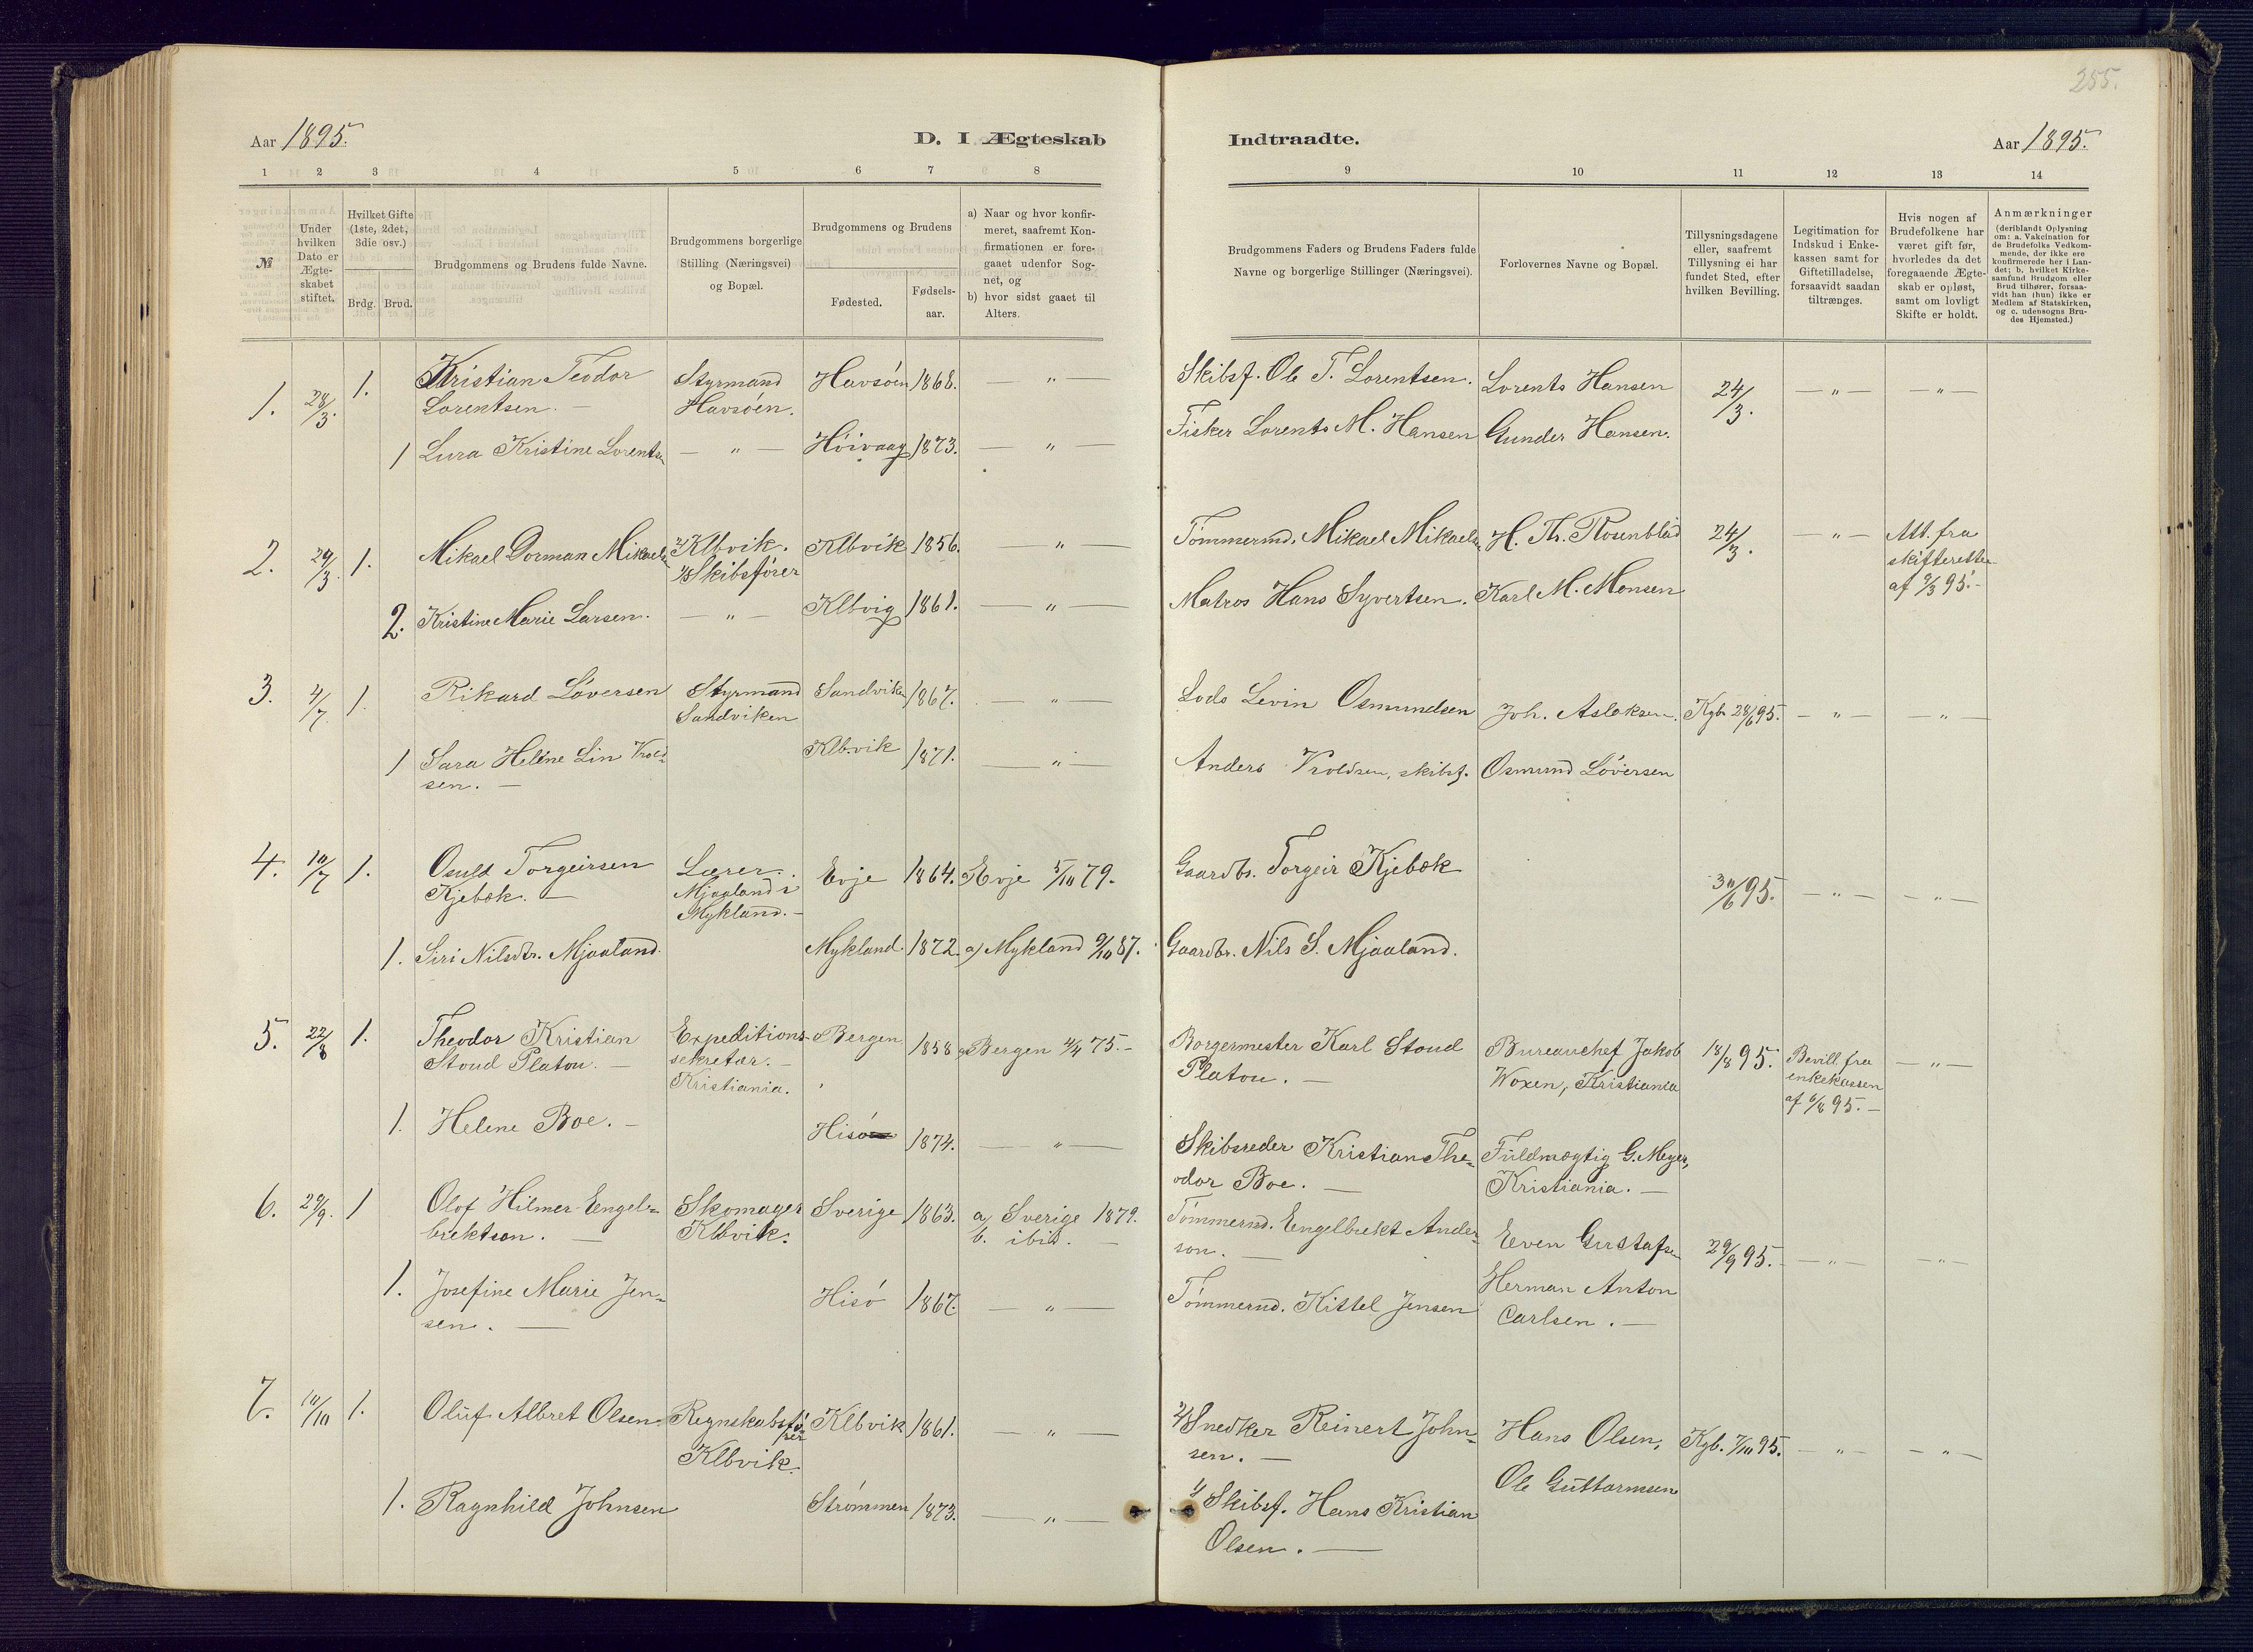 255.
Aar 1895.
D. I Ægteskab
Indtraadte.
Aar 1895.
1 2 3 4 5 6 7 8
9 10 11 12 13 14
№
Under hvilken Dato er Ægteskabet stiftet.
Hvilket Gifte (1ste, 2det, 3die osv.)
Brdg. Brud.
Brudgommens og Brudens fulde Navne.
Brudgommens borgerlige Stilling (Næringsvei) og Bopæl.
Brudgommens og Brudens
Fødested.
Fødsels-aar.
a) Naar og hvor konfirmeret, saafremt Konfirmationen er foregaaet udenfor Sognet, og
b) hvor sidst gaaet til Alters.
Brudgommens Faders og Brudens Faders fulde Navne og borgerlige Stillinger (Næringsvei).
Forlovernes Navne og Bopæl.
Tillysningsdagene eller, saafremt Tillysning ei har fundet Sted, efter hvilken Bevilling.
Legitimation for Indskud i Enkekassen samt for Giftetilladelse, forsaavidt saadan tiltrænges.
Hvis nogen af Brudefolkene har været gift før, hvorledes da det foregaaende Ægteskab er opløst, samt om lovligt Skifte er holdt.
Anmærkninger
(deriblandt Oplysning om: a. Vakcination for de Brudefolks Vedkommende, der ikke ere konfirmerede her i Landet; b. hvilket Kirkesamfund Brudgom eller Brud tilhører, forsaavidt han (hun) ikke er Medlem af Statskirken, og c. udensogns Brudes Hjemsted.)
1. 28/3. 1. Kristian Teodor Lorentsen. — Styrmand Havsøen. Havsøen 1868. — " — Skibsf. Ole T. Lorentsen. Lorents Hansen 24/3. — " — — " —
1 Lura Kristine Lorents — " — Höivaag 1873. — " — Fisker Lorents M. Hansen Gunder Hansen.
2. 29/3. 1. Mikael Dorman Mikaels 2/ Klbvik. 1/ Skibsfører Klbvik 1856. — " — Tömmermd. Mikael Mikaels H. Th. Rosenblad 24/3. — " — Att. fra skifteretten af 9/3 95. —
2. Kristine Marie Larsen. — " — Klbvig 1861. — " — Matros Hans Syvertsen. Karl M. Monsen
3. 4/7 1. Rikard Löversen Styrmand Sandviken Sandviken 1867. — " — Lods Levin Osmundsen Joh. Asloksen. Kgb 28/6 95. — " — — " —
1 Sara Helene Lin Krold-sen. — Klbvik 1871. — " — Anders Kroldsen, skibsf. Osmund Löversen
4. 10/7 1. Osuld Torgeirsen Kjebek. — Lærer. Mjaaland i Mykland. — Evje 1864. Evje 5/10 79. Gaardbr. Torgeir Kjebek 30/6 95. — " — — " —
1. Siri Nilsdtr. Mjaaland. Mykland. 1872. a) Mykland 9/10 87. Gaardbr. Nils S. Mjaaland.
5. 22/8 1. Theodor Kristian Stoud Platou. — Expeditions-sekretær. — Kristiania. Bergen 1858 a) Bergen 4/4 75. — Borgermester Karl Stoud Platou. — Bureauchef Jakob Woxen, Kristiania 18/8 95. Bevill. fra enkekassen af 6/8 95. — — " —
1. Helene Boe. — Hisö 1874. — " — Skibsreder Kristian The-odor Boe. — Fuldmægtig G. Meyer, Kristiania. —
6. 29/9. 1 Olof Hilmer Engel-brektson. — Skomager Klbvik. Sverige 1863. a) Sverige 1879. b. ibid. — Tömmermd. Engelbrekt Ander-son. — Even Gustafsen 29/9 95. — " — — " —
1. Josefine Marie Jen-sen. — Hisö 1867. — " — Tömmermd. Kittel Jensen Herman Anton Carlsen. —
7. 10/10 1. Oluf Albret Olsen. Regnskabsfö-rer Klbvik. Klbvik 1861. — " — 2/ Snedker Reinert John-sen. — Hans Olsen, Kgb. 7/10 95. — " — — " —
1. Ragnhild Johnsen Strömmen 1873. — " — 1/ Skibsf. Hans Kristian Olsen. — Ole Guttormsen